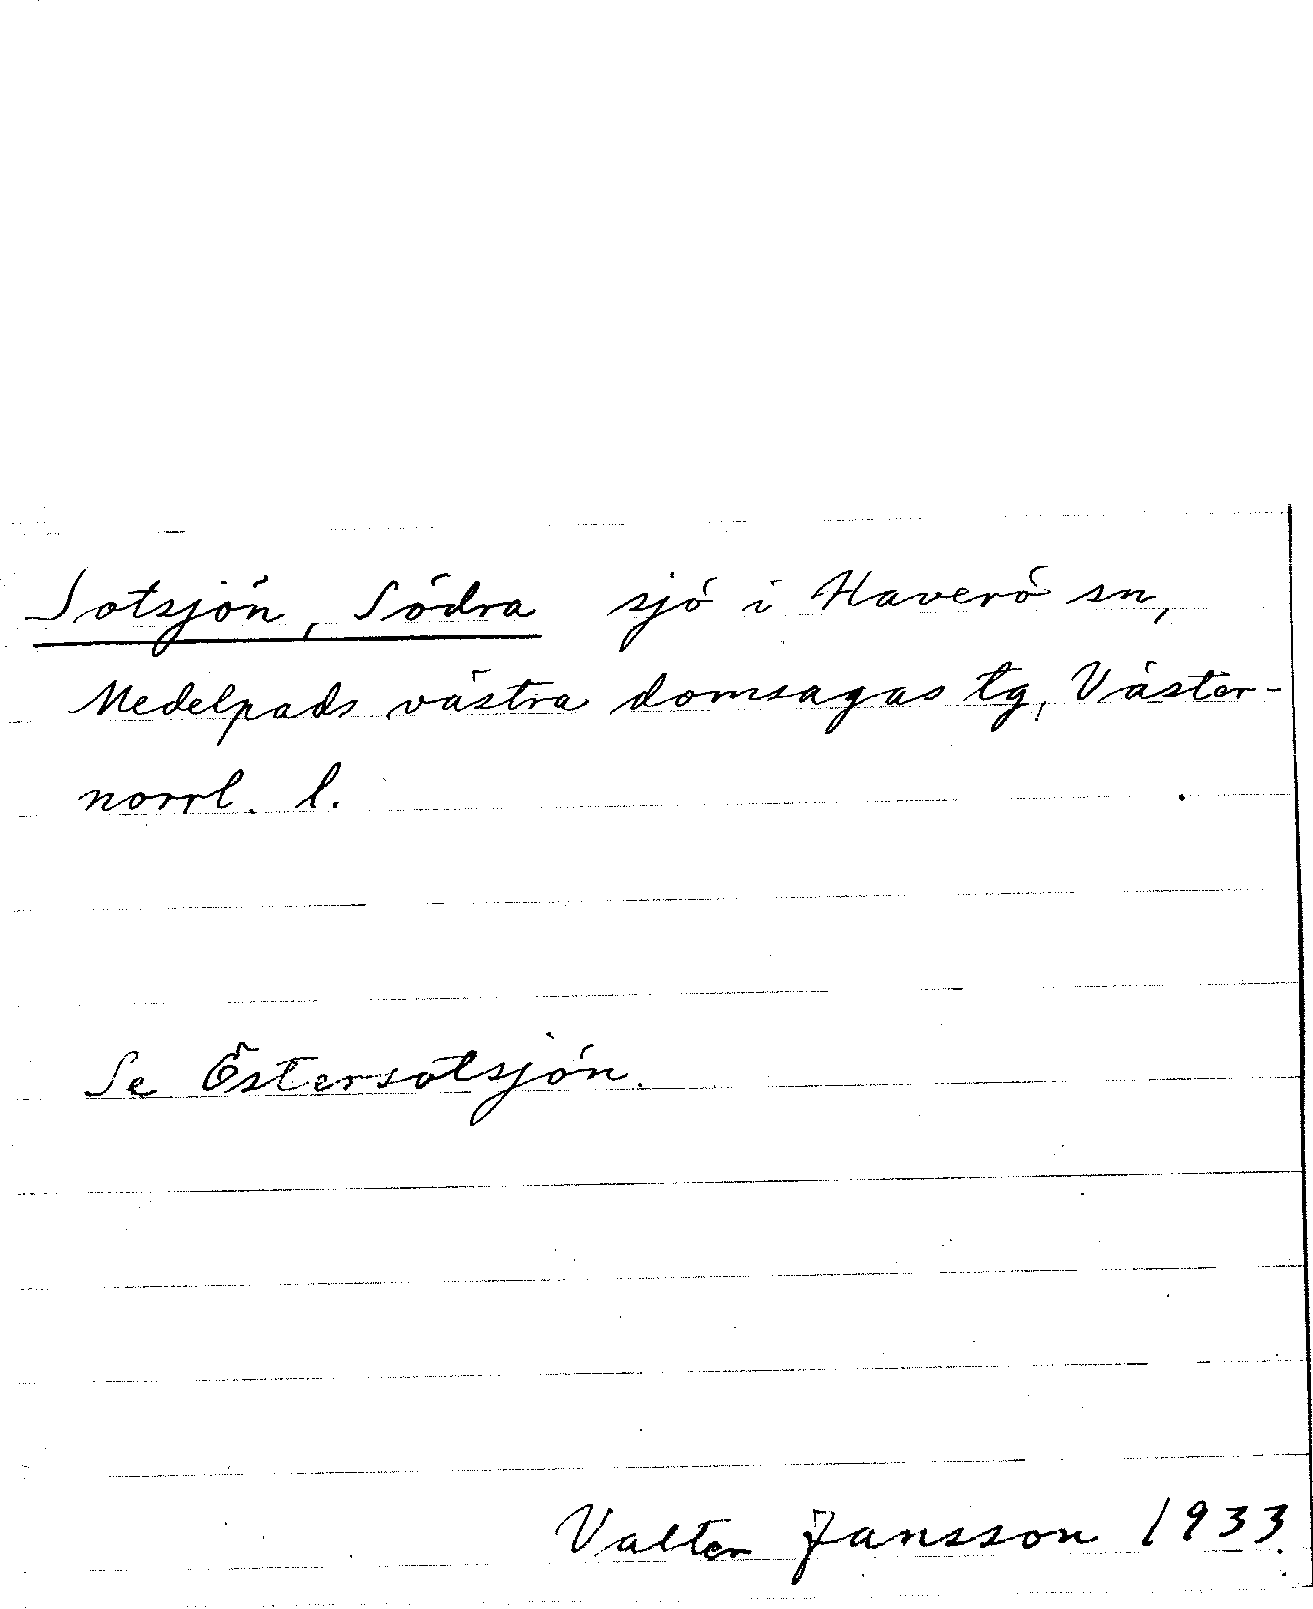 Sotsjön, Södra sjö i Haverö sn,
Medelpads västra domsagas tg, Väster-
norrl. l.
Se Östersotsjön.
Valter Jansson 1933.